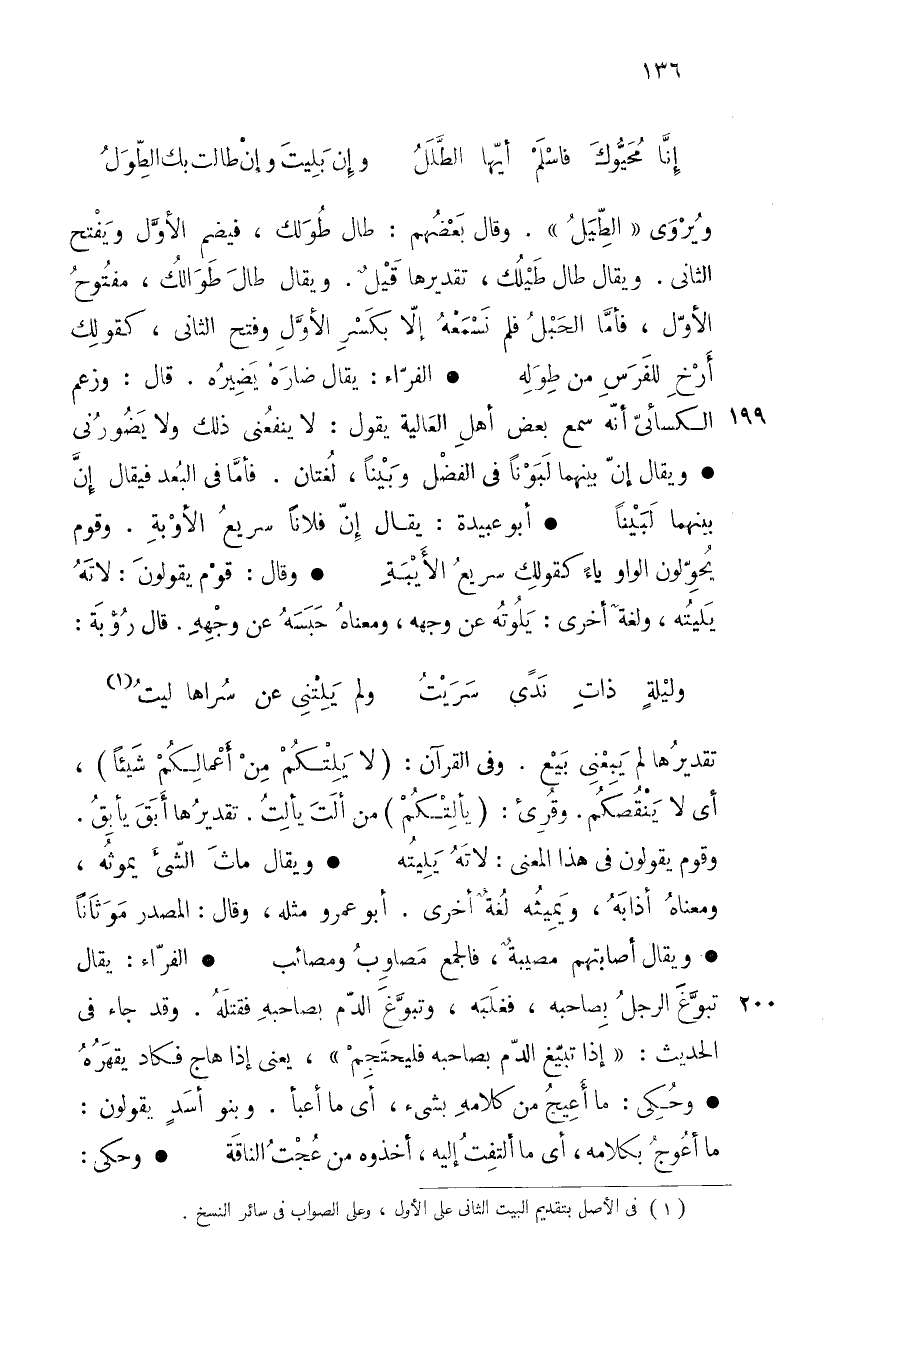 ١٣٦
إِنَّا مُحَيُّوكَ فاسْلَمْ أيّها الطَّلَلُ وإِن بَلِيتَ وإنْ طالت بك الطِّوَلُ
ويُرْوَى « الطِّيَلُ » . وقال بَعْضُهم : طال طُوَلك ، فيضم الأوَّل ويَفْتح
الثانى . ويقال طال طَيْلُك ، تقديرها قَيْلٌ . ويقال طالَ طَوَالُك ، مفتُوحُ
الأوّل ، فأمَّا الحَبْلُ فلم نَسْمَعْهُ إلّا بكَسْرِ الأوَّلِ وفتح الثانى ، كقولك
أَرْخِ للفَرَسِ من طِوَلِهِ ● الفرّاء : يقال ضارَهُ يَضِيرُه . قال : وزعم
١٩٩ الكسائىّ أنّه سمع بعض أهلِ العَالية يقول : لا ينفعُنى ذلك ولا يَضُورُنى
● ويقال إنّ بينهما لَبَوْناً فى الفضْل وبَيْناً ، لُغتان . فأمَّا فى البُعد فيقال إنَّ
بينهما لَبَيْناً ● أبو عبيدة : يقال إنّ فلاناً سريعُ الأوْبةِ . وقوم
يُحوِّلون الواو ياءً كقولك سريعُ الأَيْبَةِ ● وقال : قوْم يقولونَ : لاتَهُ
يَليتُه ، ولغةٌ أخرى : يَلُوتُه عن وجهه ، ومعناهُ حَبَسَهُ عن وجْههِ . قال رُؤْبَة :
وليْلةٍ ذاتِ نَدًى سَرَيْتُ ولم يَلِتْنِى عن سُراها ليتُ(١)
تقديرُها لم يَبِعْنِى بَيْع . وفى القرآن : ( لا يَلِتْكُمْ مِنْ أَعْمالِكُمْ شَيئاً ) ،
أى لا يَنْقُصكُم . وقُرِئ : ( يألِتْكُمْ ) من ألَتَ يألِتُ . تقديرُها أبَقَ يأبِقُ .
وقوم يقولون فى هذا المعنى : لاتَهُ يَلِيتُه ● ويقال ماثَ الشّىءَ يموثُه ،
ومعناهُ أذابَهُ ، ويَمِيثُه لُغةٌ أخرى . أبو عمرو مثله ، وقال : المصدر مَوَثَاناً
● ويقال أصابتهم مصيبةٌ ، فالجمع مَصاوِبُ ومصائب ● الفرّاء : يقال
٢٠٠ تبوَّغَ الرجلُ بِصاحبه ، فغلَبَه ، وتبوَّغَ الدّم بصاحبهِ فقتلَهُ . وقد جاء فى
الحديث : « إذا تبيّغ الدّم بصاحبه فليحتَجِمْ » ، يعنى إذا هاج فكاد يقهَرُهُ
● وحُكِى : ما أَعِيجُ من كلامهِ بشىء ، أى ما أعبأ . وبنو أسَدٍ يقولون :
ما أعُوجُ بكلامه ، أى ما ألتفِتُ إليه ، أخذوه من عُجْتُ الناقَة ● وحكى :
( ١ ) فى الأصل بتقديم البيت الثانى على الأول ، وعلى الصواب فى سائر النسخ .